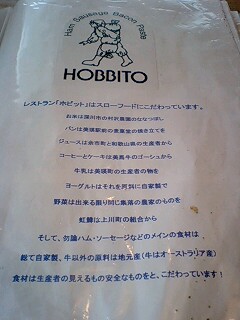 Ham Sausage Bacon Paste
HOBBITO
レストラン「ホビット」はスローフードにこだわっています。
お米は深川市の村沢農園のななつぼし
パンは美瑛駅前の食菓堂の焼き立てを
ジュースは余市町と和歌山県の生産者から
コーヒーとケーキは美馬牛のゴーシュから
牛乳は美瑛町の生産者の物を
ヨーグルトはそれを同じに自家製で
野菜は出来る限り同じ集落の農家のものを
虹鱒は上川町の組合から
そして、勿論ハム・ソーセージなどのメインの食材は
総て自家製、牛以外の原料は地元産(牛はオーストラリア産)
食材は生産者の見えるもの安全なものをと、こだわっています!